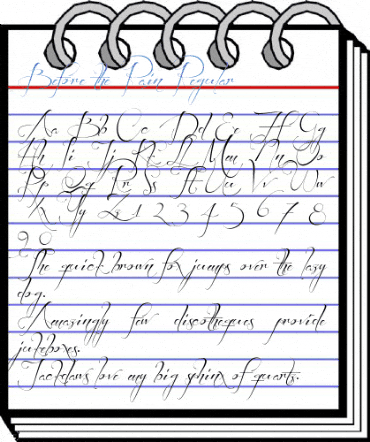 Before the Pain Regular
Aa Bb Cc Dd Ee Ff Gg
Hh Ii Jj Kk Ll Mm Nn Oo
Pp Qq Rr Ss Tt Uu Vv Ww
Xx Yy Zz 1 2 3 4 5 6 7 8
9 0
The quick brown fox jumps over the lazy
dog.
Amazingly few discotheques provide
jukeboxes.
Jackdaws love my big sphinx of quartz.